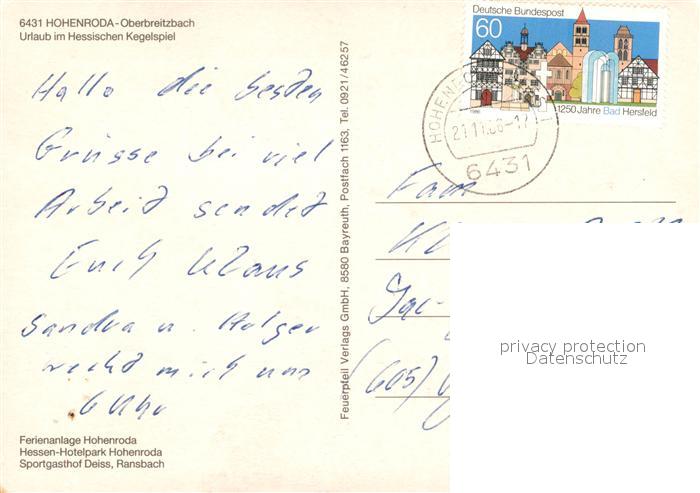 6431 HOHENRODA-Oberbreitzbach
Urlaub im Hessischen Kegelspiel
Hallo die besten
Grüsse bei viel
Arbeit sendet
Euch Klaus
Sandra u. Holger
weckt mich um
6 Uhr
Ferienanlage Hohenroda
Hessen-Hotelpark Hohenroda
Sportgasthof Deiss, Ransbach
Feuerpfeil Verlags GmbH, 8580 Bayreuth, Postfach 1163, Tel. 0921/46257
Deutsche Bundespost
60
1250 Jahre Bad Hersfeld
1986
21.11.86-17
6431
Fam
(605)
privacy protection
Datenschutz